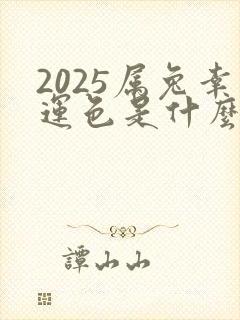 2025属兔幸
運色是什麽
譚山山